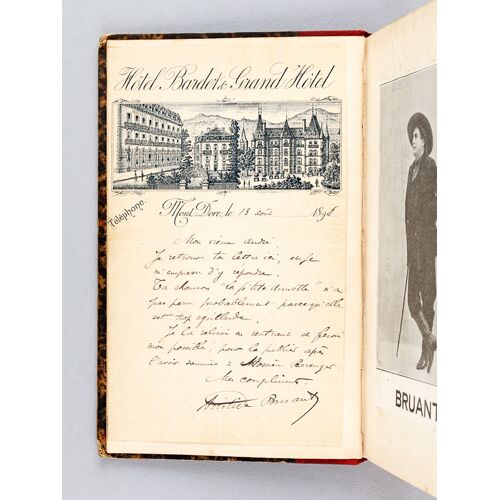 Hôtel Bardet & Grand Hôtel
Téléphone.
Mont-Dore, le 13 août 1898
Mon vieux André,
Je retrouve ta lettre ici, et je
m'empresse d'y répondre.
Ta chanson "la p'tite donette" n'a
pas paru probablement parce qu'elle
est trop égrillarde.
Je la relirai en rentrant et ferai
mon possible, pour la publier après
l'avoir soumise à Mossieu Berenger.
Mes compliments
Aristide Bruant
BRUANT